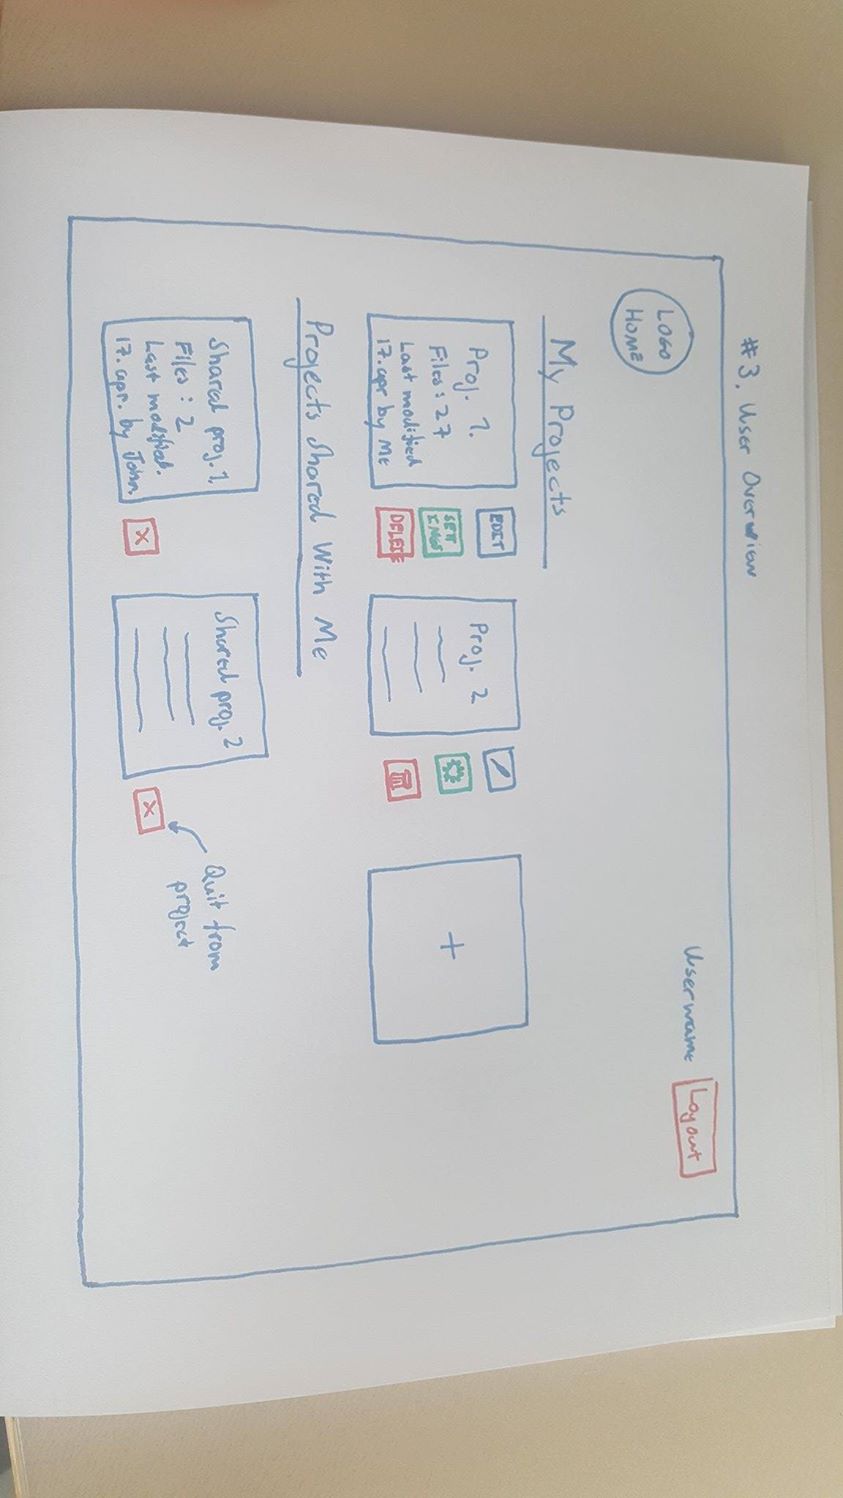 #3. User Overview
LOGO
HOME
Username
Logout
My Projects
Proj. 1.
Files: 27
Last modified
17. apr by Me
EDIT
SETT
INGS
DELETE
Proj. 2
+
Projects Shared With Me
Shared proj. 1.
Files: 2
Last modified.
17. apr. by John.
X
Shared proj. 2
X
Quit from
project